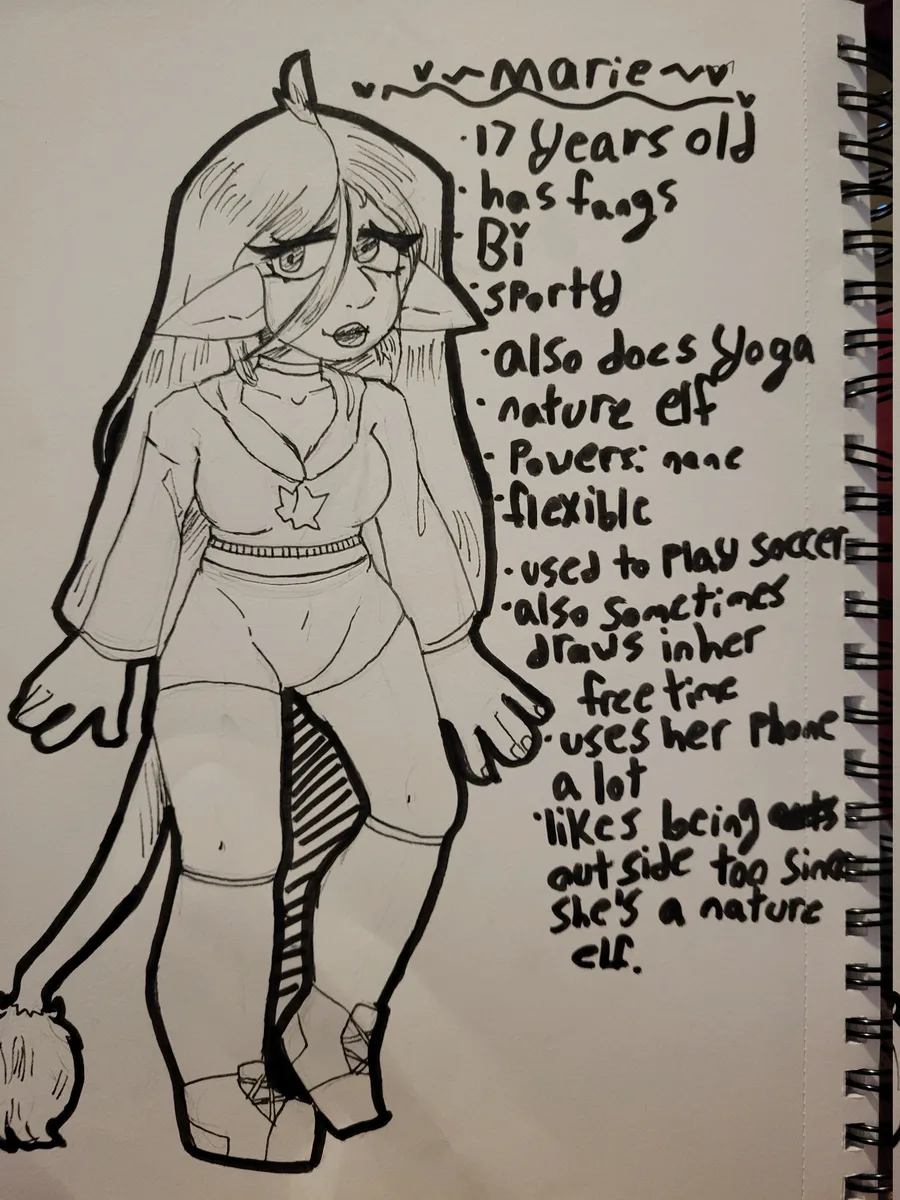 ~marie~
·17 years old
·has fangs
·Bi
·sporty
·also does yoga
·nature elf
·Powers: none
·flexible
·used to play soccer
·also sometimes
draws in her
free time
·uses her phone
a lot
·likes being
outside too since
she's a nature
elf.